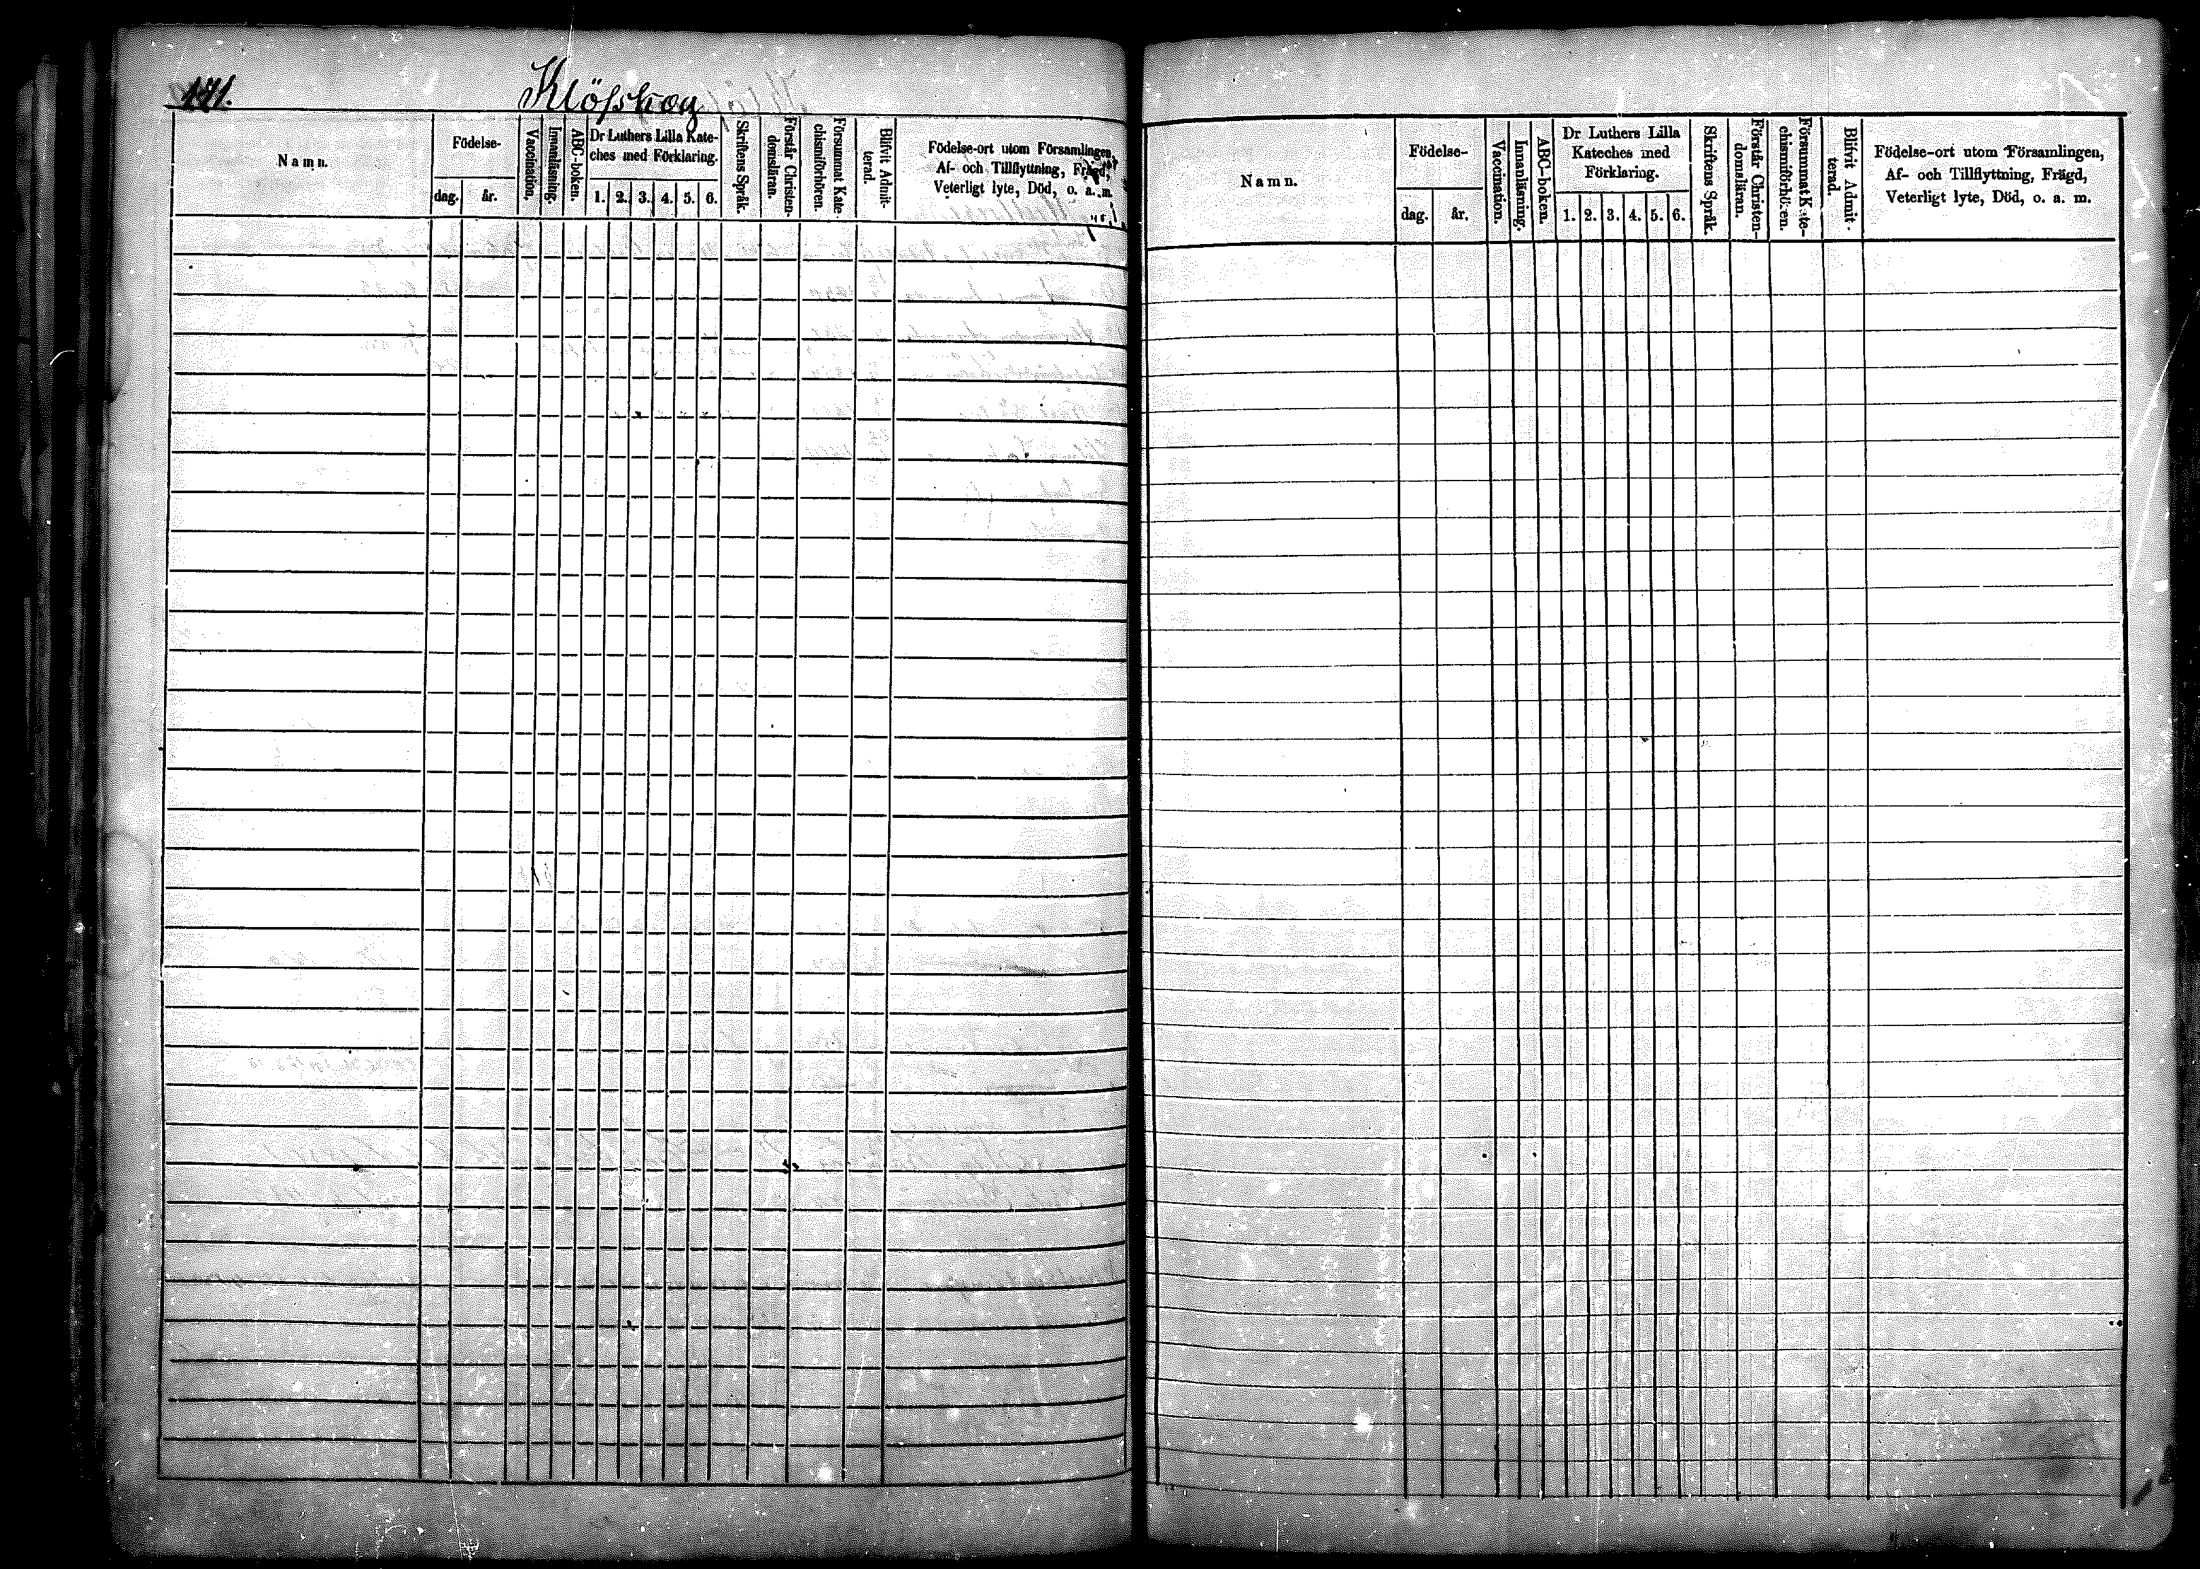 141.
Klöfskog
Namn.
Födelse-
dag.
år.
Vaccination.
Innanläsning.
ABC-boken.
Dr Luthers Lilla Kate-
ches med Förklaring.
1. 2. 3. 4. 5. 6.
Skriftens Språk.
Förstår Christen-
domsläran.
Försummat Kate-
chismiförhören.
Blifvit Admit-
terad.
Födelse-ort utom Församlingen,
Af- och Tillflyttning, Frägd,
Veterligt lyte, Död, o. a. m.
Namn.
Födelse-
dag.
år.
Vaccination.
Innanläsning.
ABC-boken.
Dr Luthers Lilla
Kateches med
Förklaring.
1. 2. 3. 4. 5. 6.
Skriftens Språk.
Förstår Christen-
domsläran.
Försummat Kate-
chismiförhören.
Blifvit Admit-
terad.
Födelse-ort utom Församlingen,
Af- och Tillflyttning, Frägd,
Veterligt lyte, Död, o. a. m.